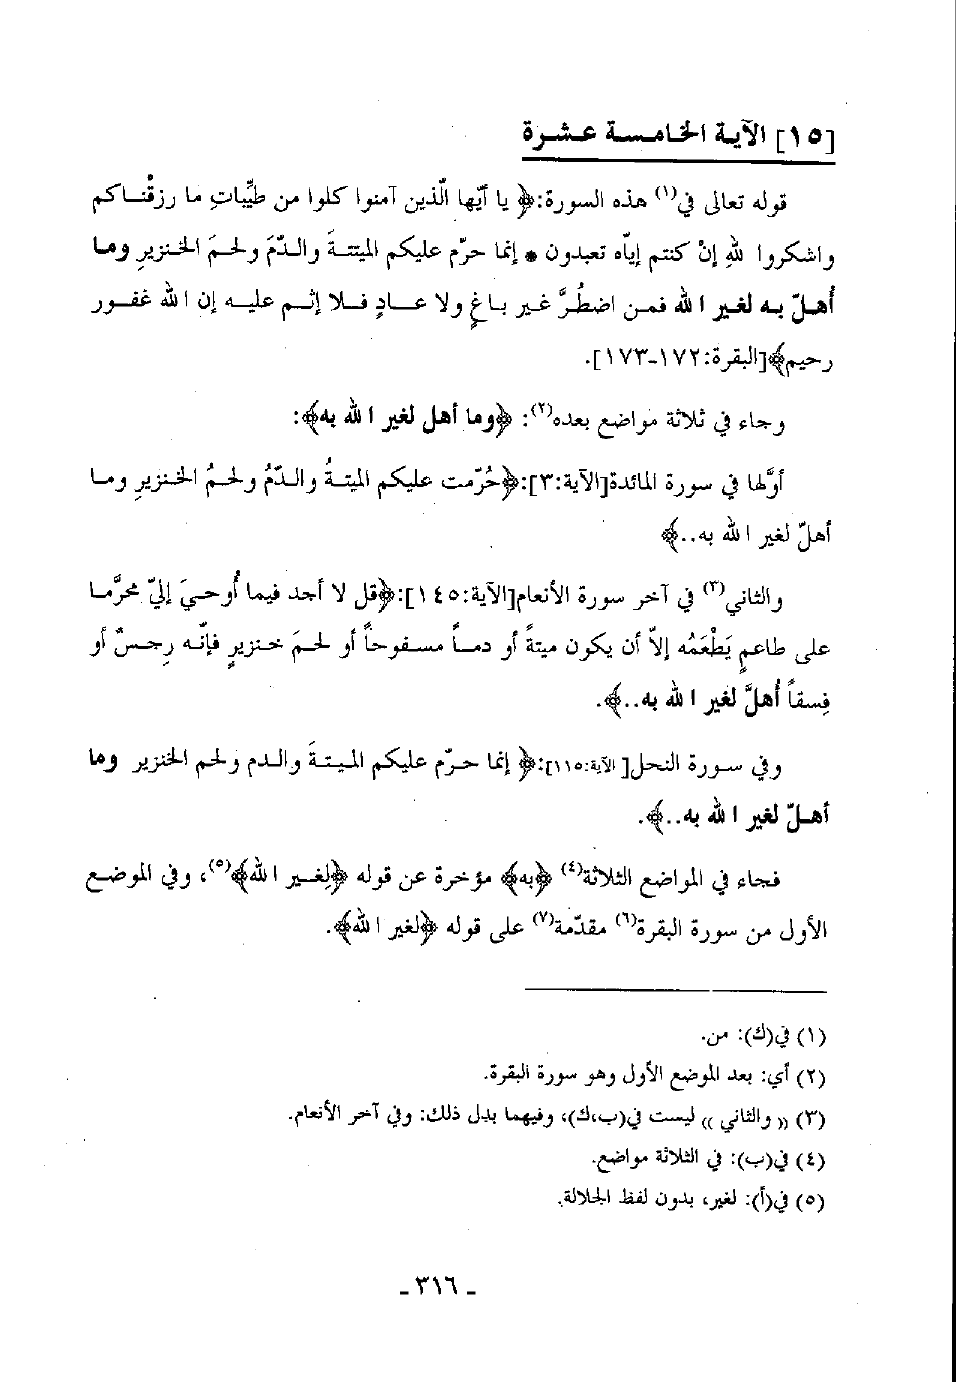 [١٥] الآيـة الخـامـسـة عـشـرة
قوله تعالى في(١) هذه السورة:﴿ يا أيّها الّذين آمنوا كلوا من طيِّباتِ ما رزقْنـاكم
واشكروا للهِ إنْ كنتم إيّاه تعبدون * إنما حرّم عليكم الميتـةَ والـدّمَ ولحـمَ الخـنزيرِ ومـا
أهـلّ بـه لغـير ا لله فمـن اضطُرَّ غـير بـاغٍ ولا عـادٍ فـلا إثـم عليـه إن ا لله غفـور
رحيم﴾[البقرة:١٧٢-١٧٣].
وجاء في ثلاثة مواضع بعده(٢): ﴿وما أهل لغير ا لله به﴾:
أوّلها في سورة المائدة[الآية:٣]:﴿حُرّمت عليكم الميتـةُ والـدّمُ ولحـمُ الخـنزيرِ ومـا
أهلّ لغير ا لله به..﴾
والثاني(٣) في آخر سورة الأنعام[الآية:١٤٥]:﴿قل لا أجد فيما أُوحيَ إليّ محرَّمـا
على طاعمٍ يَطْعَمُه إلاّ أن يكون ميتةً أو دمـاً مسـفوحاً أو لحـمَ خنزيرٍ فإنّـه رِجـسٌ أو
فِسقاً أُهلَّ لغير ا لله به..﴾.
وفي سـورة النحل[ الآية:١١٥]:﴿ إنما حـرّم عليكم المـيـتـةَ والـدم ولحم الخنزير وما
أهـلّ لغير ا لله به..﴾.
فجاء في المواضع الثلاثة(٤) ﴿به﴾ مؤخرة عن قوله ﴿لِغـير ا لله﴾(٥)، وفي الموضـع
الأول من سورة البقرة(٦) مقدّمة(٧) على قوله ﴿لغير ا لله﴾.
(١) في(ك): من.
(٢) أي: بعد الموضع الأول وهو سورة البقرة.
(٣) (( والثاني )) ليست في(ب،ك)، وفيهما بدل ذلك: وفي آخر الأنعام.
(٤) في(ب): في الثلاثة مواضع.
(٥) في(أ): لغير، بدون لفظ الجلالة.
- ٣١٦ -